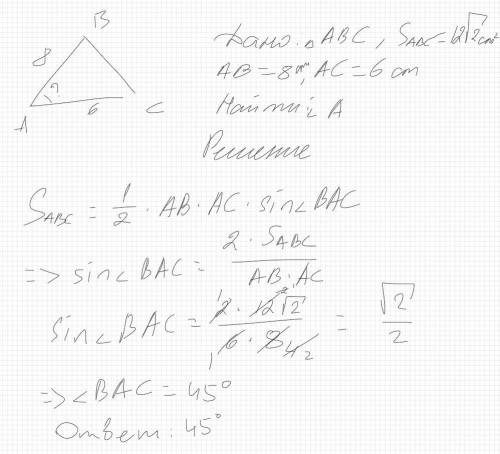 B
8
?
A
6
C
Дано: △ ABC, S_ABC = 12√2 cm²
AB = 8 cm, AC = 6 cm
Найти: ∠ A
Решение
S_ABC = 1/2 · AB · AC · sin∠BAC
=> sin∠BAC = 2 · S_ABC / AB · AC
sin∠BAC = 2 · 12√2 / 6 · 8 = √2 / 2
=> ∠BAC = 45°
Ответ: 45°